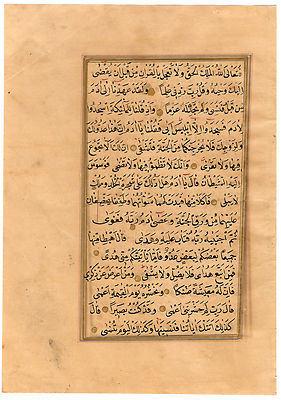 فَتَعَالَى اللَّهُ الْمَلِكُ الْحَقُّ وَلَا تَعْجَلْ بِالْقُرْآنِ مِنْ قَبْلِ أَنْ يُقْضَى
إِلَيْكَ وَحْيُهُ وَقُلْ رَبِّ زِدْنِي عِلْمًا وَلَقَدْ عَهِدْنَا إِلَى آدَمَ
مِنْ قَبْلُ فَنَسِيَ وَلَمْ نَجِدْ لَهُ عَزْمًا وَإِذْ قُلْنَا لِلْمَلَائِكَةِ اسْجُدُوا
لِآدَمَ فَسَجَدُوا إِلَّا إِبْلِيسَ أَبَى فَقُلْنَا يَا آدَمُ إِنَّ هَذَا عَدُوٌّ لَكَ
وَلِزَوْجِكَ فَلَا يُخْرِجَنَّكُمَا مِنَ الْجَنَّةِ فَتَشْقَى إِنَّ لَكَ أَلَّا تَجُوعَ
فِيهَا وَلَا تَعْرَى وَأَنَّكَ لَا تَظْمَأُ فِيهَا وَلَا تَضْحَى فَوَسْوَسَ
إِلَيْهِ الشَّيْطَانُ قَالَ يَا آدَمُ هَلْ أَدُلُّكَ عَلَى شَجَرَةِ الْخُلْدِ وَمُلْكٍ
لَا يَبْلَى فَأَكَلَا مِنْهَا فَبَدَتْ لَهُمَا سَوْآتُهُمَا وَطَفِقَا يَخْصِفَانِ
عَلَيْهِمَا مِنْ وَرَقِ الْجَنَّةِ وَعَصَى آدَمُ رَبَّهُ فَغَوَى
ثُمَّ اجْتَبَاهُ رَبُّهُ فَتَابَ عَلَيْهِ وَهَدَى قَالَ اهْبِطَا مِنْهَا
جَمِيعًا بَعْضُكُمْ لِبَعْضٍ عَدُوٌّ فَإِمَّا يَأْتِيَنَّكُمْ مِنِّي هُدًى
فَمَنِ اتَّبَعَ هُدَايَ فَلَا يَضِلُّ وَلَا يَشْقَى وَمَنْ أَعْرَضَ عَنْ ذِكْرِي
فَإِنَّ لَهُ مَعِيشَةً ضَنْكًا وَنَحْشُرُهُ يَوْمَ الْقِيمَةِ أَعْمَى
قَالَ رَبِّ لِمَ حَشَرْتَنِي أَعْمَى وَقَدْ كُنْتُ بَصِيرًا قَالَ
كَذَلِكَ أَتَتْكَ آيَاتُنَا فَنَسِيتَهَا وَكَذَلِكَ الْيَوْمَ تُنْسَى